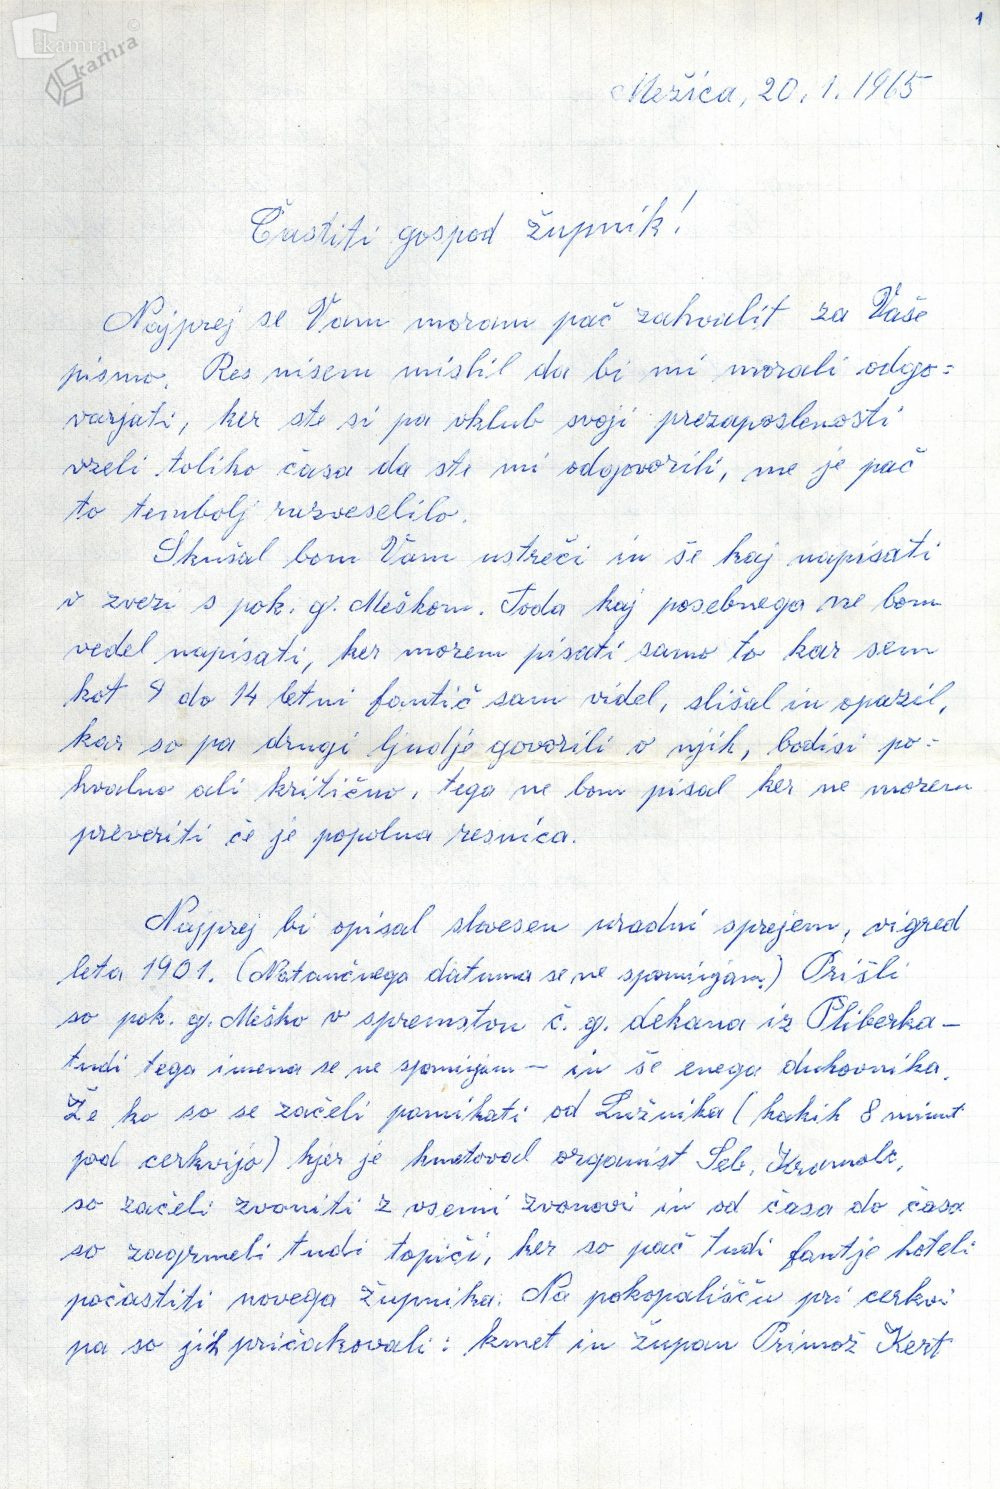 1
kamra
kamra
©
Mežica, 20. 1. 1965
Častiti gospod župnik!
Najprej se Vam moram pač zahvalit za Vaše
pismo. Res nisem mislil da bi mi morali odgo=
varjati, ker ste si pa vkljub svoji prezaposlenosti
vzeli toliko časa da ste mi odgovorili, me je pač
to tembolj razveselilo.
Skušal bom Vam ustreči in še kaj napisati
v zvezi s pok. g. Meškom. Toda kaj posebnega ne bom
vedel napisati, ker morem pisati samo to kar sem
kot 9 do 14 letni fantič sam videl, slišal in opazil,
kar so pa drugi ljudje govorili o njih, bodisi po=
hvalno ali kritično, tega ne bom pisal ker ne morem
preveriti če je popolna resnica.
Najprej bi opisal slovesen uradni sprejem, vigred
leta 1901. (Natančnega datuma se ne spominjam.) Prišli
so pok. g. Meško v spremstvu č. g. dekana iz Pliberka –
tudi tega imena se ne spominjam – in še enega duhovnika.
Že ko so se začeli pomikati od Lužnika (kakih 8 minut
pod cerkvijo) kjer je kmetoval organist Seb. Kramolc,
so začeli zvoniti z vsemi zvonovi in od časa do časa
so zagrmeli tudi topiči, ker so pač tudi fantje hoteli
počastiti novega župnika. Na pokopališču pri cerkvi
pa so jih pričakovali: kmet in župan Primož Kert